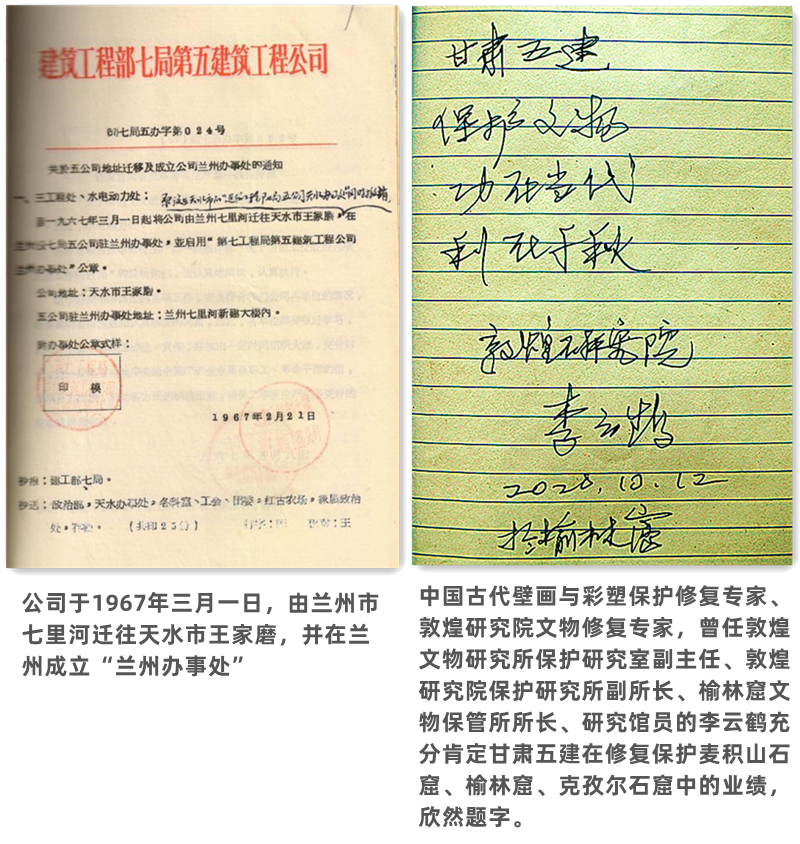 建筑工程部七局第五建筑工程公司
(67)七局五办字第024号
关於五公司地址迁移及成立公司兰州办事处的通知
一、三工程处、水电动力处：
自一九六七年三月一日起将公司由兰州七里河迁往天水市王家磨，在
兰州设七局五公司驻兰州办事处，並启用“第七工程局第五建筑工程公司
兰州办事处”公章。
公司地址：天水市王家磨。
五公司驻兰州办事处地址：兰州七里河新建大楼内。
附办事处公章式样：
印模
1967年2月21日
抄报：建工部七局。
抄送：政治部，天水办事处，各科室、工会、团委，红古农场，
(共印25份)
公司于1967年三月一日，由兰州市
七里河迁往天水市王家磨，并在兰
州成立“兰州办事处”
甘肃五建
保护文物
功在当代
利在千秋
敦煌研究院
李云鹤
2020.10.12
于榆林窟
中国古代壁画与彩塑保护修复专家、
敦煌研究院文物修复专家，曾任敦煌
文物研究所保护研究室副主任、敦煌
研究院保护研究所副所长、榆林窟文
物保管所所长、研究馆员的李云鹤充
分肯定甘肃五建在修复保护麦积山石
窟、榆林窟、克孜尔石窟中的业绩，
欣然题字。